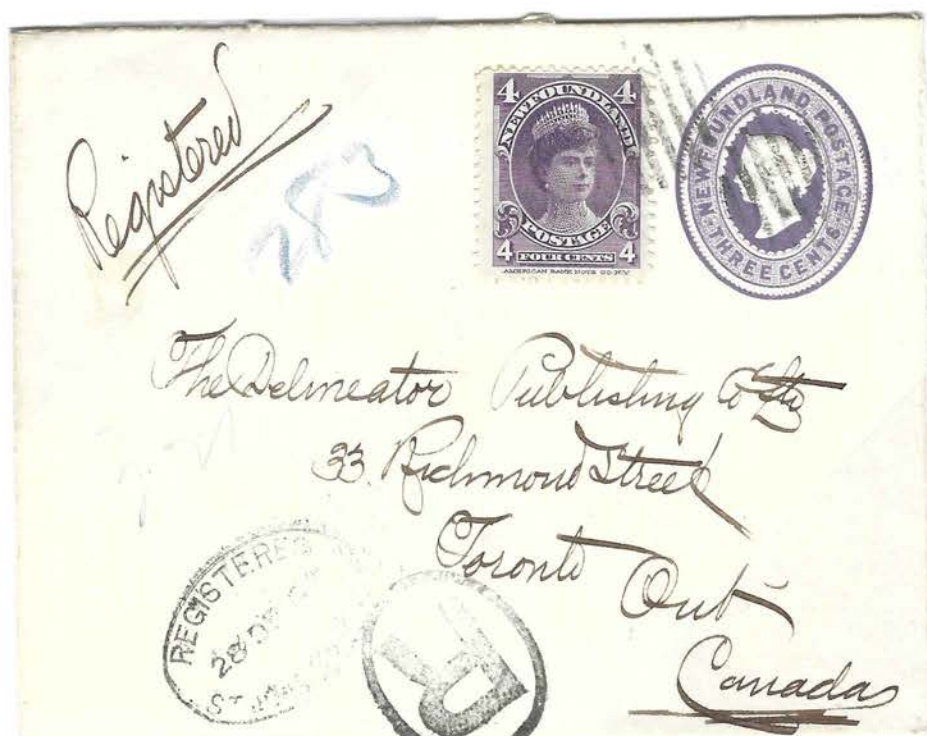 Registered
253
4 4
NEWFOUNDLAND
POSTAGE
4 4
FOUR CENTS
AMERICAN BANK NOTE CO. N.Y.
NEWFOUNDLAND POSTAGE
THREE CENTS
The Delineator Publishing Co Ltd
33 Richmond Street
Toronto
Ont
Canada
REGISTERED
28
ST JOHN'S
R